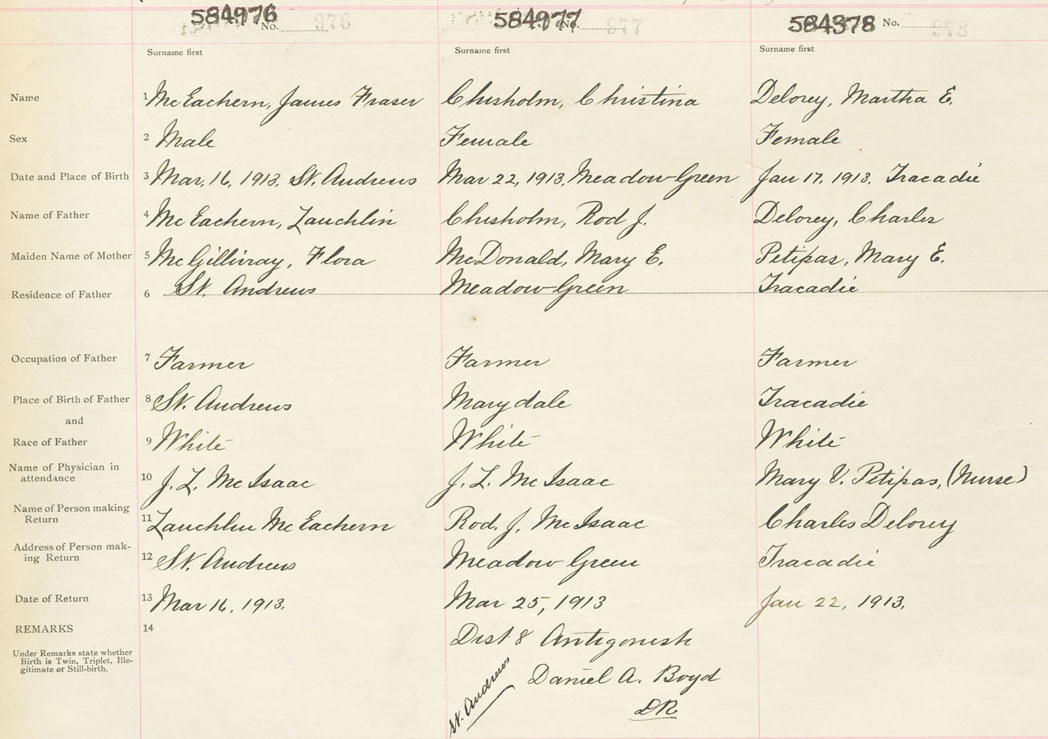 584976 No. 976 584977 No. 977 584378 No. 978
Surname first Surname first Surname first
Name 1 McEachern, James Fraser Chisholm, Christina Delorey, Martha E.
Sex 2 Male Female Female
Date and Place of Birth 3 Mar. 16, 1913. St. Andrews Mar 22, 1913. Meadow Green Jan 17. 1913. Tracadie
Name of Father 4 McEachern, Lauchlin Chisholm, Rod J. Delorey, Charles
Maiden Name of Mother 5 McGillivray, Flora McDonald, Mary E. Petipas, Mary E.
Residence of Father 6 St. Andrews Meadow Green Tracadie
Occupation of Father 7 Farmer Farmer Farmer
Place of Birth of Father 8 St. Andrews Marydale Tracadie
and
Race of Father 9 White White White
Name of Physician in
attendance 10 J. L. McIsaac J. L. McIsaac Mary V. Petipas, (Nurse)
Name of Person making
Return 11 Lauchlin McEachern Rod. J. McIsaac Charles Delorey
Address of Person mak-
ing Return 12 St. Andrews Meadow Green Tracadie
Date of Return 13 Mar 16, 1913. Mar 25, 1913 Jan 22, 1913.
REMARKS 14 Dist 8 Antigonish
Under Remarks state whether
Birth is Twin, Triplet, Ille-
gitimate or Still-birth.
Daniel A. Boyd
St. Andrews
DR